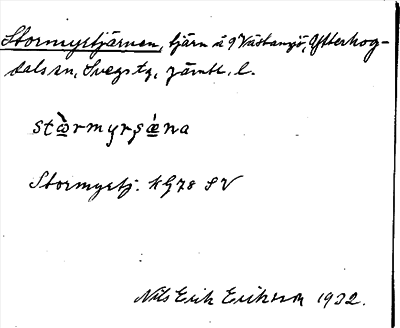 Stormyrtjärnen, tjärn å 9 Västansjö, Ytterhog-
dals sn, Svegs tg, Jämtl. l.
stæ̀rmyrʂǽna
Stormyrtj. kG78 SV
Nils Erik Erikson 1932.